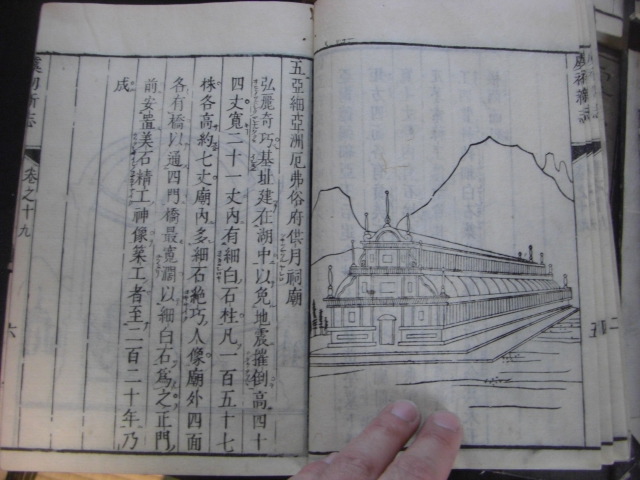 虞初新志
五亞細亞洲厄弗俗府供月祠廟
弘麗奇巧基址建在湖中以免地震摧倒高四十
四丈寬二十一丈內有細白石柱凡一百五十七
株各高約七丈廟內多細石絶巧人像廟外四面
各有橋以通四門橋最寬濶以細白石爲之正門
前安置美石精工神像築工者至二百二十年乃
成
虞初新志
卷之十九
六